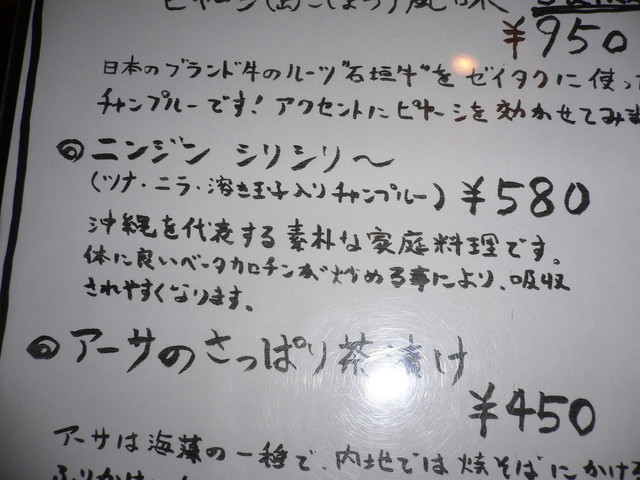 ピヤーシ(島こしょう)風味
¥950
日本のブランド牛のルーツ"石垣牛"をゼイタクに使っ
チャンプルーです!アクセントにピヤーシを効かせてみま
◎ニンジン シリシリ〜
(ツナ・ニラ・溶き玉子入りチャンプルー) ¥580
沖縄を代表する素朴な家庭料理です。
体に良いベータカロチンが炒める事により、吸収
されやすくなります。
◎アーサのさっぱり茶漬け
¥450
アーサは海藻の一種で、内地では焼そばにかける